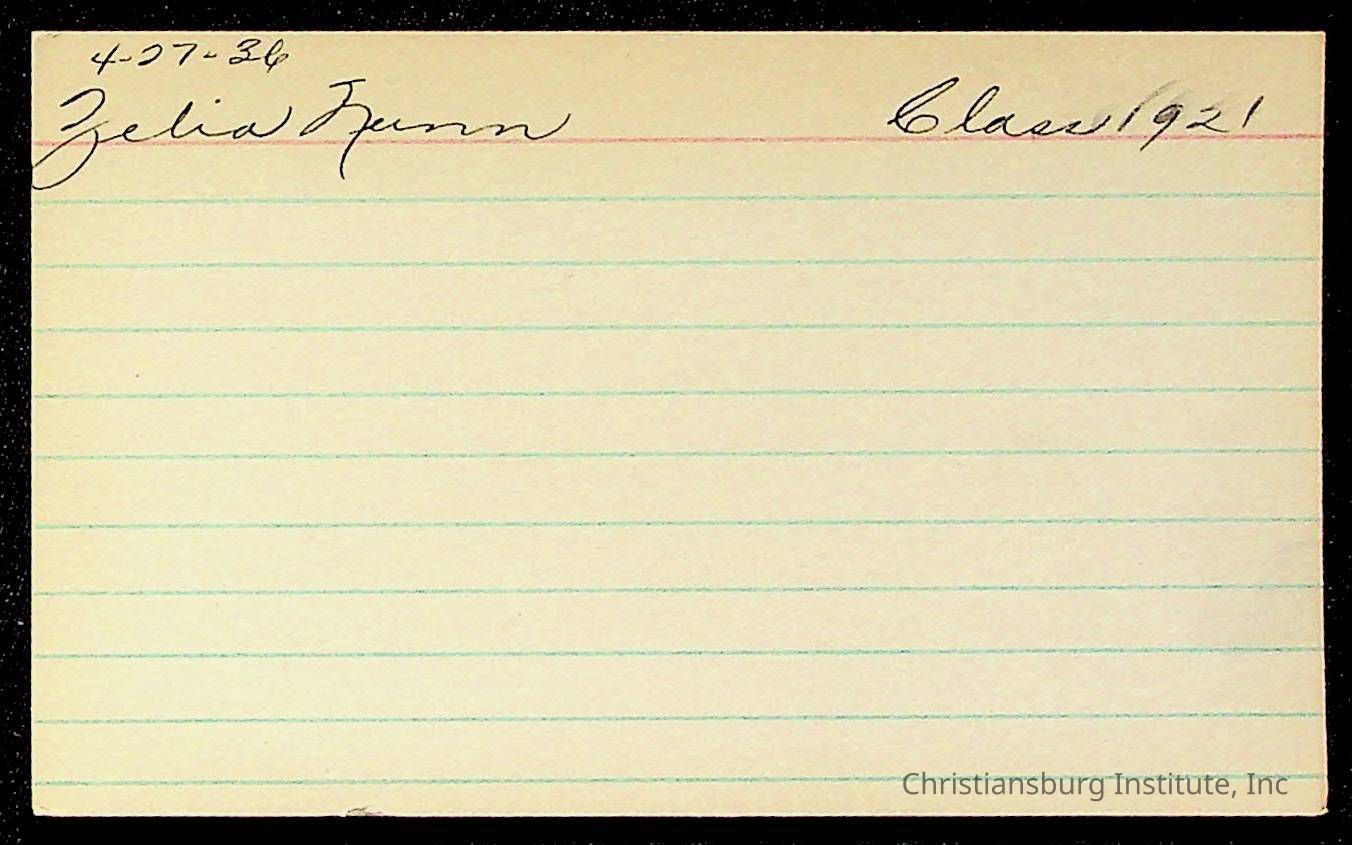 4-27-36
Zelia Nunn Class 1921
Christiansburg Institute, Inc